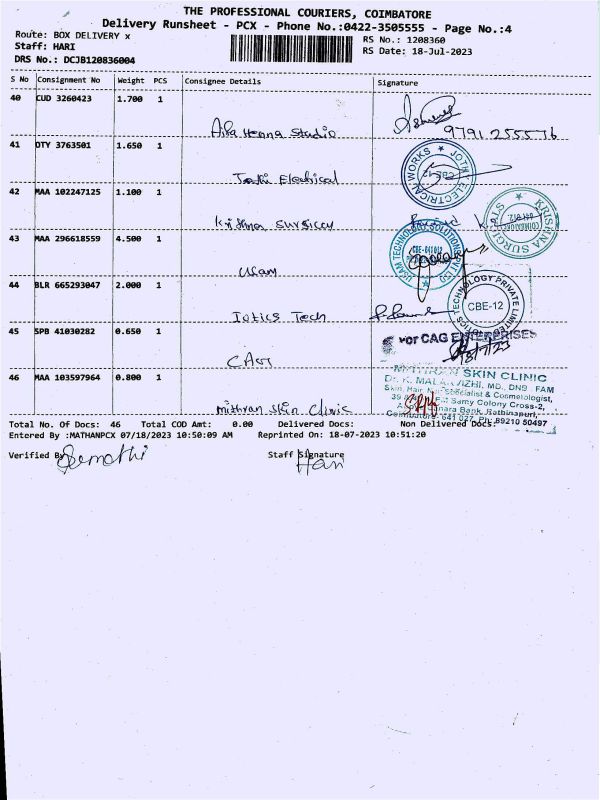 THE PROFESSIONAL COURIERS, COIMBATORE
Delivery Runsheet - PCX - Phone No.:0422-3505555 - Page No.:4
Route: BOX DELIVERY x
RS No.: 1208360
Staff: HARI
RS Date: 18-Jul-2023
DRS No.: DCJB120836004
S No Consignment No Weight PCS Consignee Details Signature
40 CUD 3260423 1.700 1
Henna Studio 9791255576
41 OTY 3763501 1.650 1
Jothi Electrical
JOTHI ELECTRICAL WORKS
CBE-12
42 MAA 102247125 1.100 1
Krishna Surgiccy
KRISHNA SURGICALS
43 MAA 296618559 4.500 1
Usam
USAM TECHNOLOGY SOLUTIONS PVT LTD
44 BLR 665293047 2.000 1
Iotics Tech
TECHNOLOGY PRIVATE LIMITED
CBE-12
45 SPB 41030282 0.650 1
CAG
For CAG ENTERPRISES
18/7/23
46 MAA 103597964 0.800 1
Mithran Skin Clinic
MITHRAN SKIN CLINIC
Dr. K. MALARVIZHI, MD, DNB, FAM
Skin, Hair, Specialist & Cosmetologist,
39 Samy Colony Cross-2,
Canara Bank, Rathinapuri,
Coimbatore 641 027 Ph: 89210 50497
Total No. Of Docs: 46 Total COD Amt: 0.00 Delivered Docs: Non Delivered Docs:
Entered By :MATHANPCX 07/18/2023 10:50:09 AM Reprinted On: 18-07-2023 10:51:20
Verified By Staff Signature
Hari